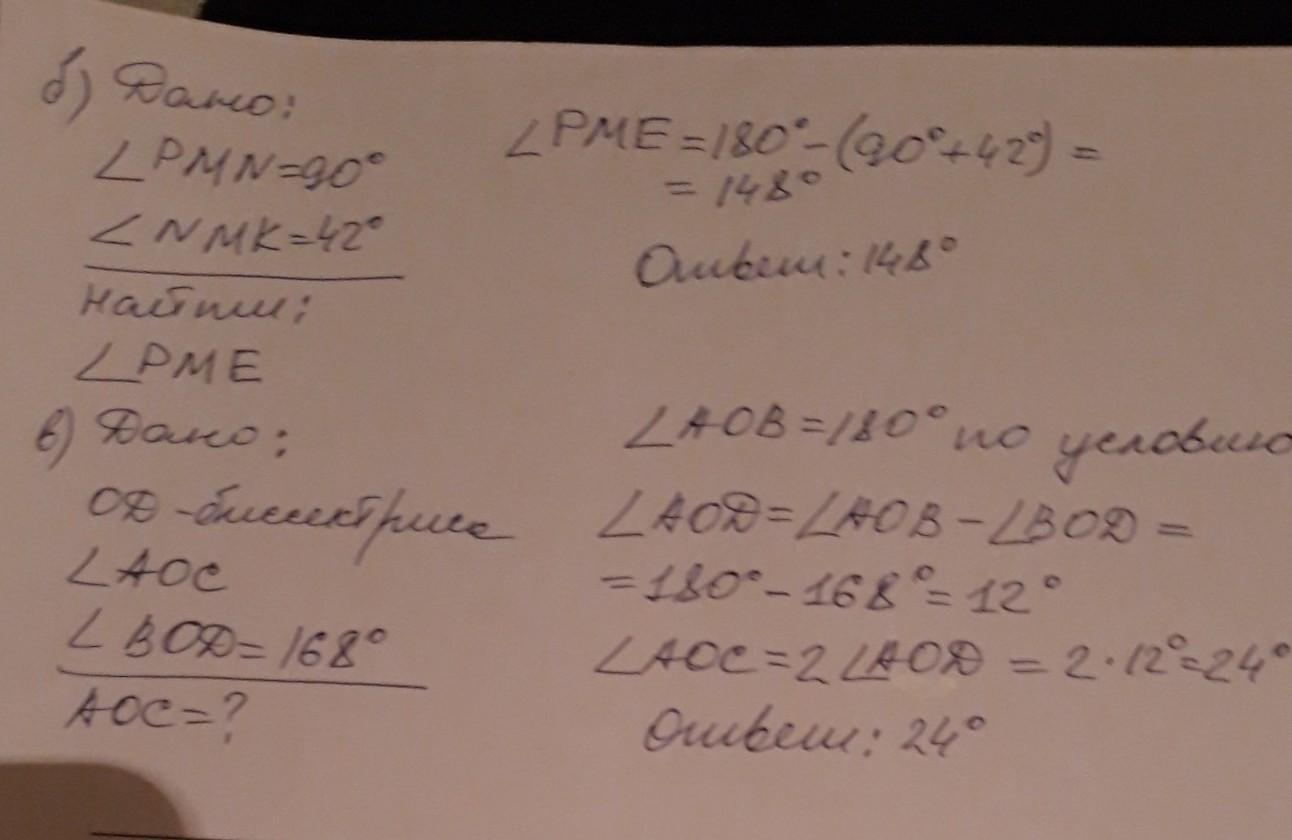 б) Дано:
∠PMN=90°
∠NMK=42°
Найти:
∠PME
∠PME=180°-(90°+42°)=
=148°
Ответ: 148°
в) Дано:
OD-биссектриса
∠AOC
∠BOD=168°
AOC=?
∠AOB=180° по условию
∠AOD=∠AOB-∠BOD=
=180°-168°=12°
∠AOC=2∠AOD=2·12°=24°
Ответ: 24°